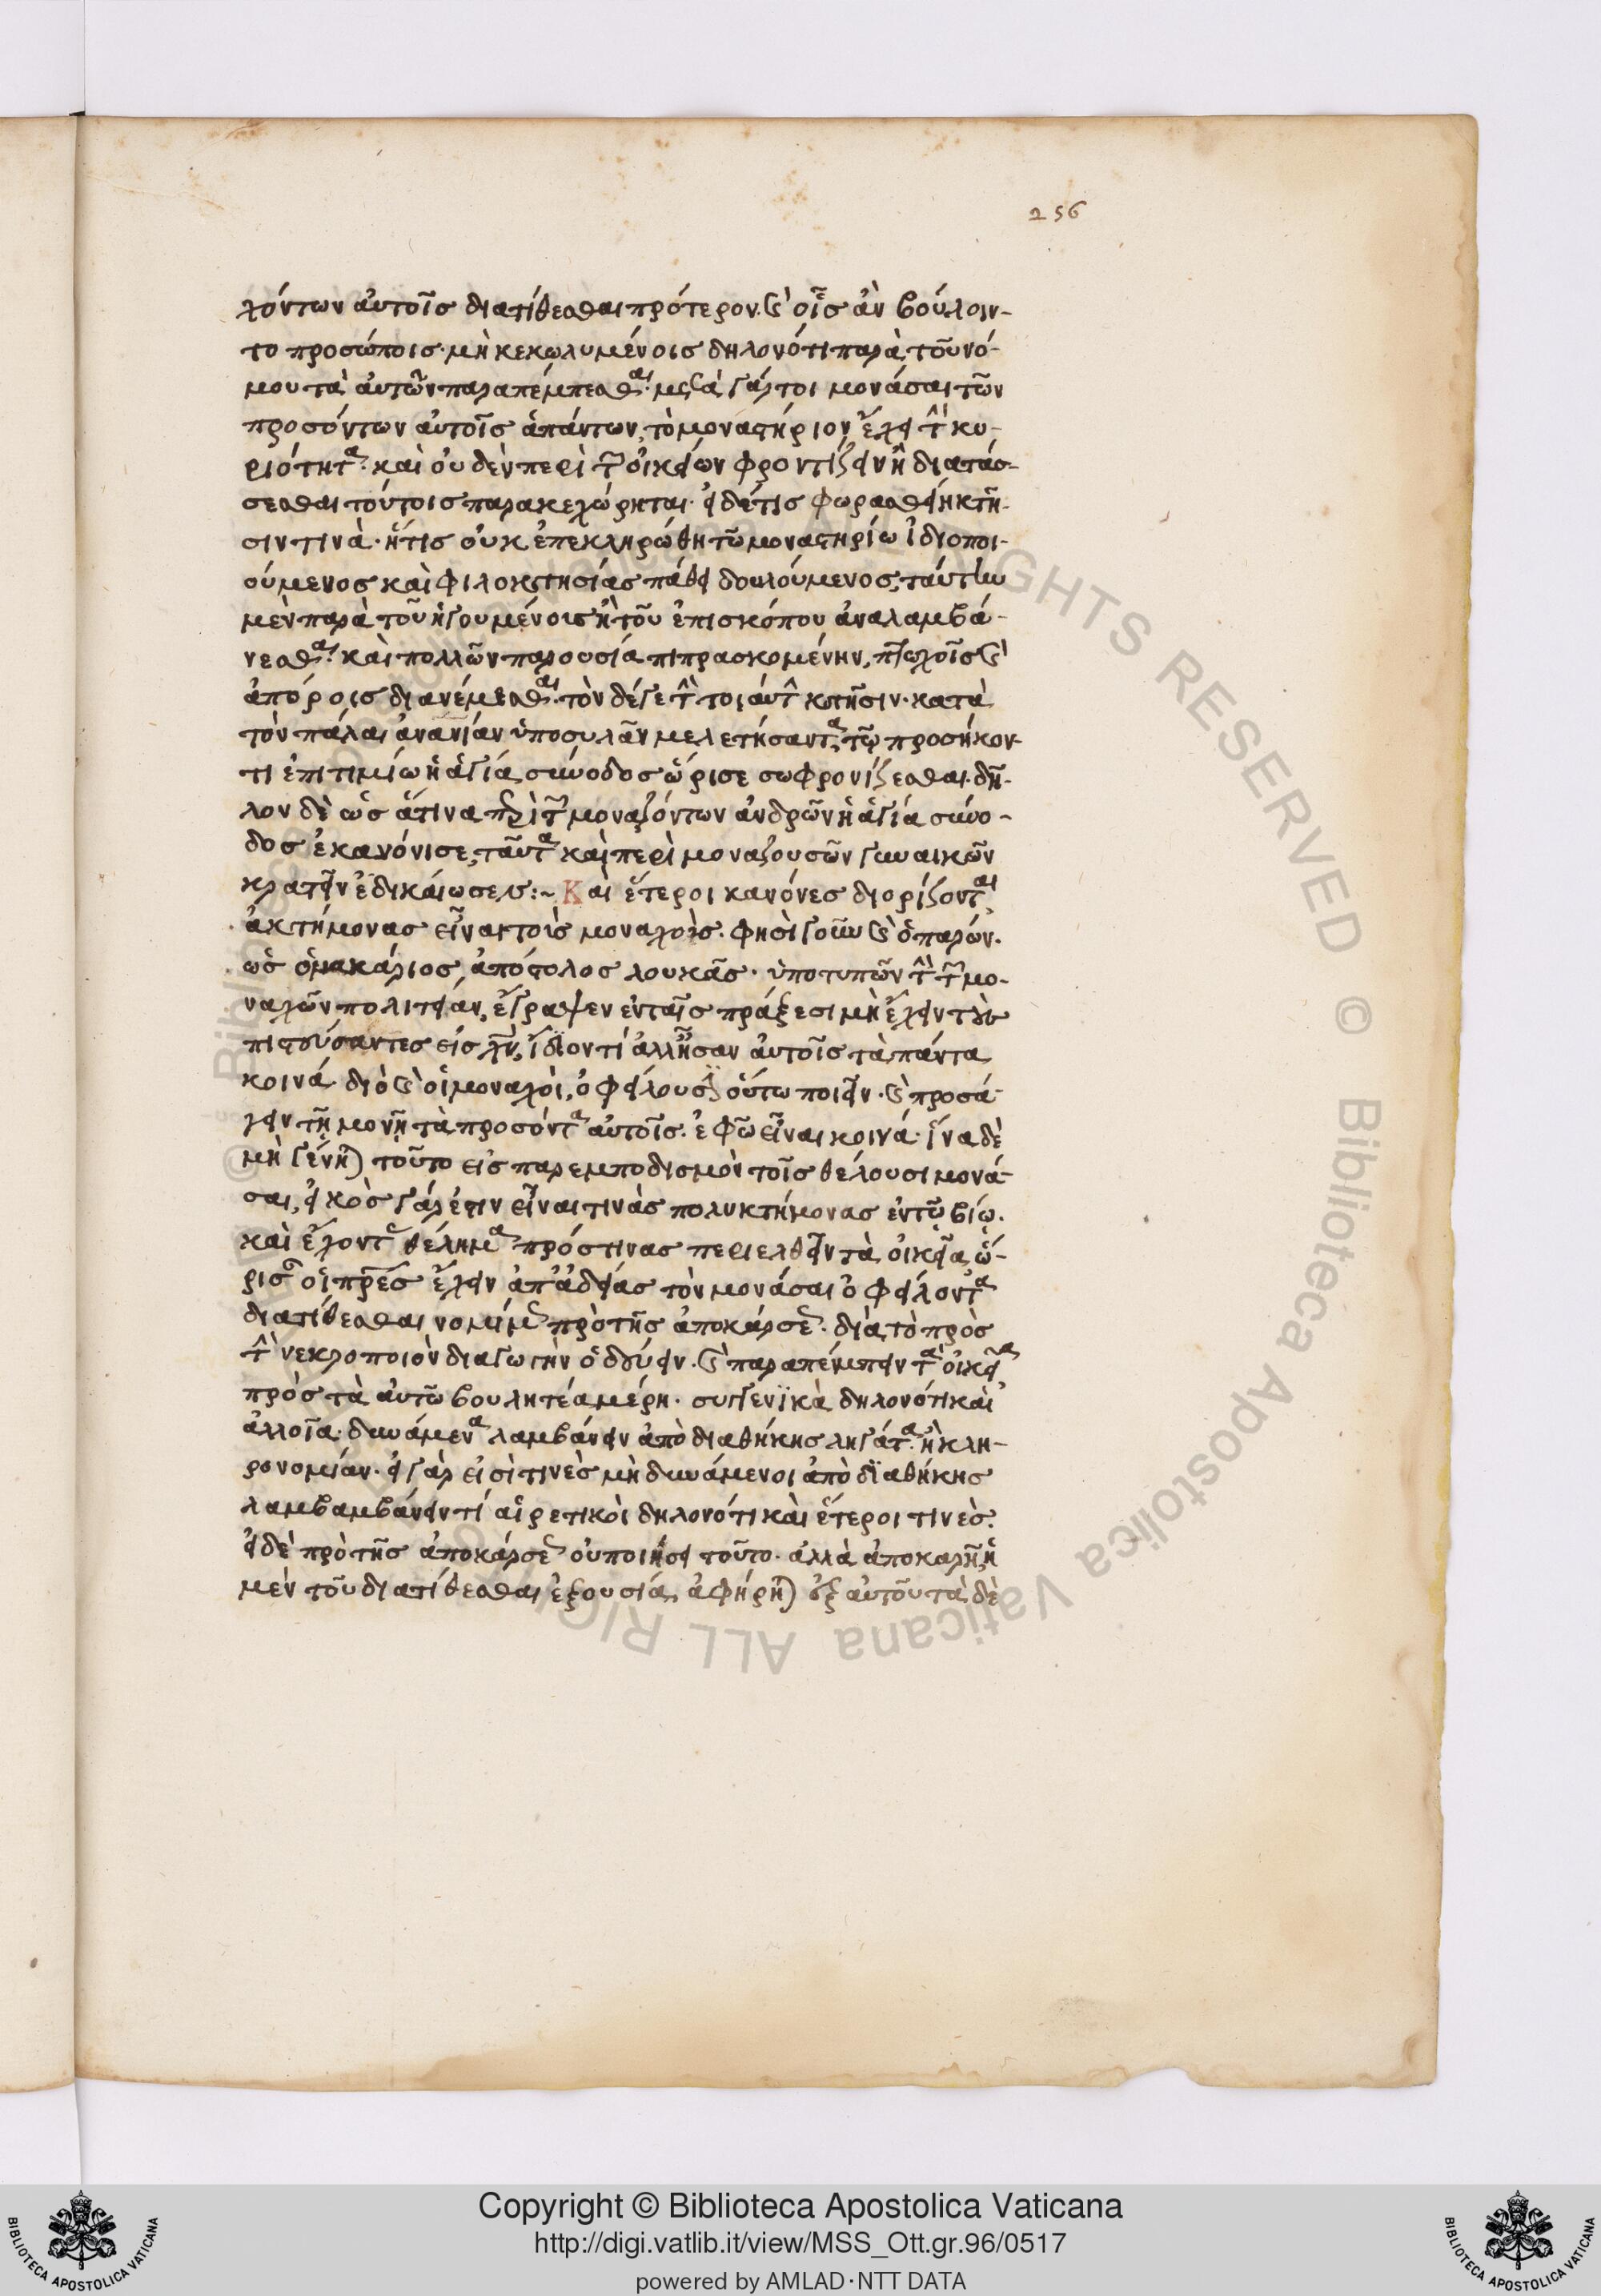 256
χόντων αὐτοῖς διατίθεσθαι πρότερον. καὶ οἷς ἂν βούλοιν-
το προσώποις· μὴ κεκωλυμένοις δηλονότι παρὰ τοῦ νό-
μου τὰ αὐτῶν παραπέμπεσθαι· μετὰ γάρ τοι μονάσαι τῶν
προσόντων αὐτοῖς ἁπάντων, τὸ μοναστήριον ἔχει τὴν κυ-
ριότητα· καὶ οὐδὲν περὶ τῶν οἰκείων φροντίζειν ἢ διατάσ-
σεσθαι τούτοις παρακεχώρηται· εἰ δέ τις φωραθείη κτῆ-
σιν τινὰ· ἥτις οὐκ ἐπεκληρώθη τῶ μοναστηρίω ἰδιοποι-
ούμενος καὶ φιλοκτησίας πάθει δουλούμενος, ταύτην
μὲν παρὰ τοῦ ἡγουμένοις ἢ τοῦ ἐπισκόπου ἀναλαμβά-
νεσθαι· καὶ πολλῶν παρουσία πιπρασκομένην, πτωχοῖς καὶ
ἀπόροις διανέμεσθαι· τὸν δέ γε τὴν τοιαύτην κτῆσιν· κατὰ
τὸν πάλαι ἀνανίαν ὑποσυλᾶν μελετήσαντα, τῷ προσήκον-
τι ἐπιτιμίω ἡ ἁγία σύνοδος ὥρισε σωφρονίζεσθαι. δῆ-
λον δὲ ὡς ἅτινα περὶ τῶν μοναζόντων ἀνδρῶν ἡ ἁγία σύνο-
δος ἐκανόνισε, ταῦτα καὶ περὶ μοναζουσῶν γυναικῶν
κρατεῖν ἐδικαίωσεν:~ Καὶ ἕτεροι κανόνες διορίζονται
ἀκτήμονας εἶναι τοὺς μοναχοὺς. φησὶ γοῦν καὶ ὁ παρών.
ὡς ὁ μακάριος ἀπόστολος λουκᾶς· ὑποτυπῶν τὴν τῶν μο-
ναχῶν πολιτείαν, ἔγραψεν ἐν ταῖς πράξεσι μὴ ἔχειν τοὺς
πιστεύσαντες εἰς χν, ἴδιόν τί ἀλλ' ἦσαν αὐτοῖς τὰ πάντα
κοινά. διὸ καὶ οἱ μοναχοὶ, ὀφείλουσιν οὕτω ποιεῖν· καὶ προσά-
γειν τῇ μονῇ τὰ προσόντα αὐτοῖς. ἐφ' ῶ εἶναι κοινά. ἵνα δὲ
μὴ γένηται τοῦτο εἰς παρεμποδισμὸν τοῖς θέλουσι μονά-
σαι, εἰκὸς γάρ ἐστιν εἶναι τινὰς πολυκτήμονας ἐν τῷ βίῳ.
καὶ ἔχοντας θέλημα πρός τινας περιελθεῖν τὰ οἰκεῖα, ὥ-
ρισαν οἱ πρες ἔχειν ἀπ' ἀδείας τὸν μονάσαι ὀφείλοντα
διατίθεσθαι νομίμως πρὸ τῆς ἀποκάρσεως. διὰ τὸ πρὸς
τὴν νεκροποιὸν διαγωγὴν ὁδεύειν. καὶ παραπέμπειν τὰ οἰκεῖα
πρὸς τὰ αὐτῶ βουλητέα μέρη. συγγενικὰ δηλονότι καὶ
ἀλλοῖα· δυνάμενα λαμβάνειν ἀπὸ διαθήκης ληγάτα. ἢ κλη-
ρονομίαν. εἰ γὰρ εἰσὶ τινὲς μὴ δυνάμενοι ἀπὸ διαθήκης
λαμβαμβάνειν τί αἱρετικοὶ δηλονότι καὶ ἕτεροι τινὲς.
εἰ δὲ πρὸ τῆς ἀποκάρσεως οὐ ποιήσει τοῦτο. ἀλλὰ ἀποκαρῆ, ἡ
μὲν τοῦ διατίθεσθαι ἐξουσία, ἀφήρηται ἐξ αὐτοῦ τὰ δὲ
Copyright © Biblioteca Apostolica Vaticana
http://digi.vatlib.it/view/MSS_Ott.gr.96/0517
powered by AMLAD·NTT DATA
BIBLIOTECA APOSTOLICA VATICANA
BIBLIOTECA APOSTOLICA VATICANA
© Biblioteca Apostolica Vaticana ALL RIGHTS RESERVED © Biblioteca Apostolica Vaticana ALL RIGHTS RESERVED